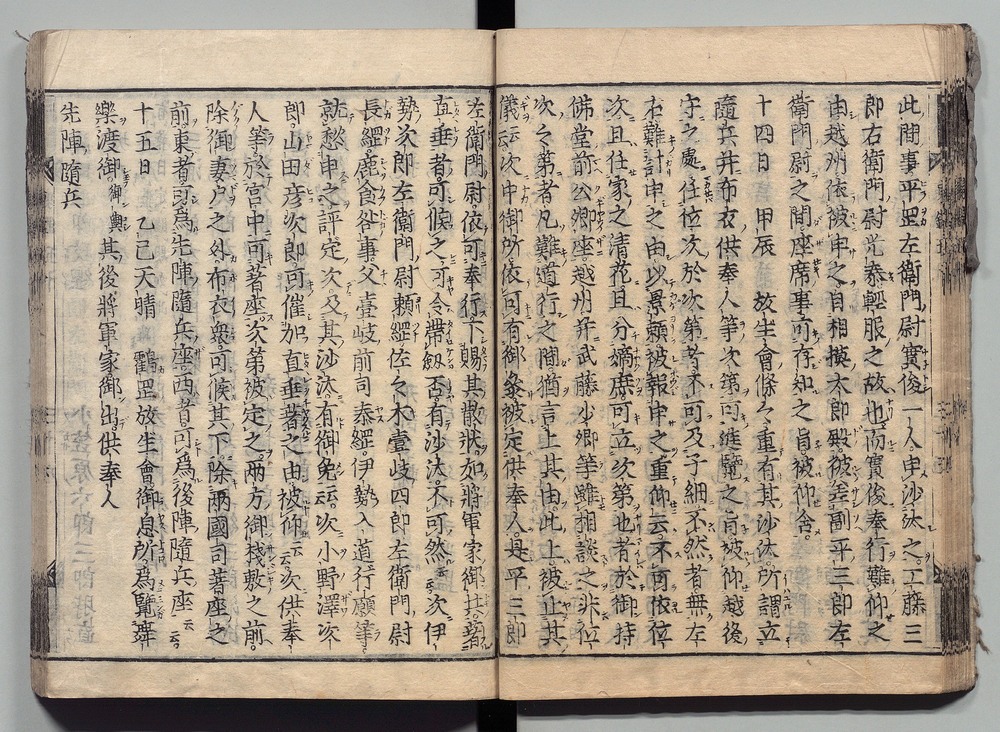 此間事平罡左衛門尉實俊一人申沙汰之工藤三
郎右衛門尉光泰輕服之故也而實俊奉行難仰之
由越州依被申之自相摸太郎殿被差副平三郎左
衛門尉之間座席事可存知之旨被仰舍
十四日 甲辰 放生會條々重有其沙汰所謂立
隨兵并布衣供奉人等次第可進覽之旨被仰越後
守之處任位次於次第者不可及子細不然者無左
右難計申之由以景頼被報申之重仰云不可依位
次且仕家之清花且分嫡庶可立次第也者於御持
佛堂前公卿座越州并武藤少卿等雖相談之非位
次之第者凡難道行之間猶言上其由此上被止其
儀云次中御所依可有御參被定供奉人是平三郎
左衛門尉依可奉行下賜其散状如將軍家御共著
直垂者可候之可令帶劔否有沙汰不可然云次伊
勢次郎左衛門尉頼經佐々木壹岐四郎左衛門尉
長經鹿食谷事父壹岐前司泰經伊勢入道行願等
就愁申之評定次及其沙汰有御免云次小野澤次
郎山田彦次郎可催加直垂著之由被仰云次供奉
人等於宮中可著座次第被定之兩方御棧敷之前
除御妻戸之外布衣衆可候其下除兩國司著座之
前東者可為先陣隨兵座西者可為後陣隨兵座云云
十五日 乙巳天晴 鶴罡放生會御息所為覽舞
樂渡御御輿其後將軍家御出供奉人
先陣隨兵